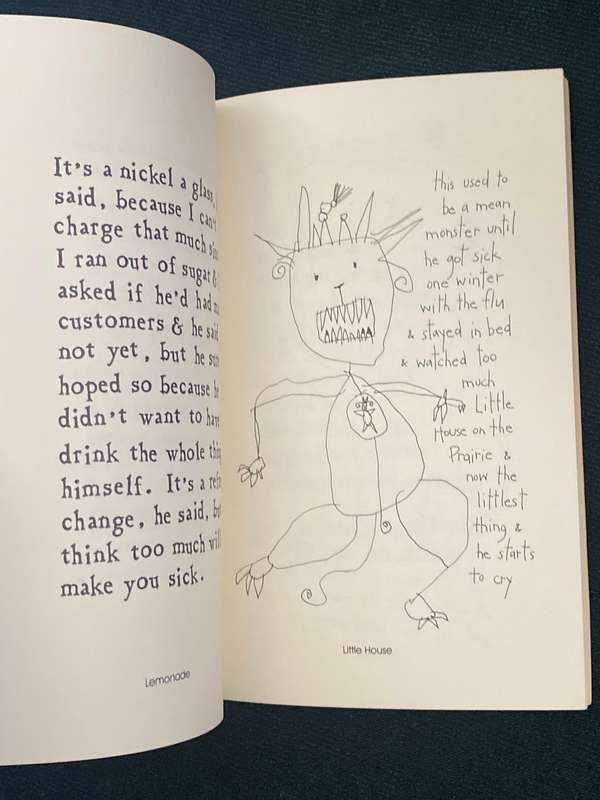 It's a nickel a glass,
said, because I can't
charge that much
I ran out of sugar &
asked if he'd had
customers & he said
not yet, but he sure
hoped so because he
didn't want to have
drink the whole thing
himself. It's a
change, he said, but
think too much will
make you sick.
Lemonade
this used to
be a mean
monster until
he got sick
one winter
with the flu
& stayed in bed
& watched too
much
Little
House on the
Prairie &
now the
littlest
thing &
he starts
to cry
Little House